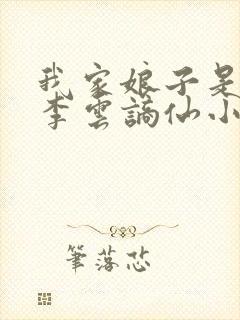 我家娘子是
李雲謫仙小
筆落芯